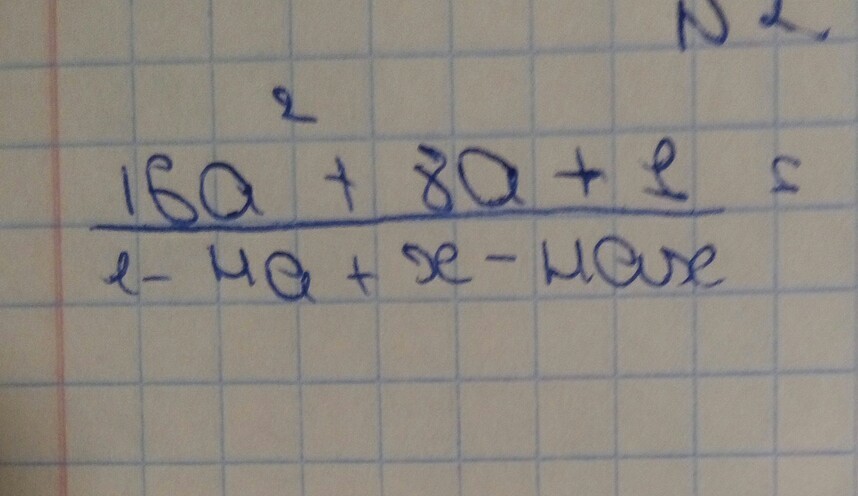 N 1
16a² + 8a + 1 =
1 - 4a + x - 4ax